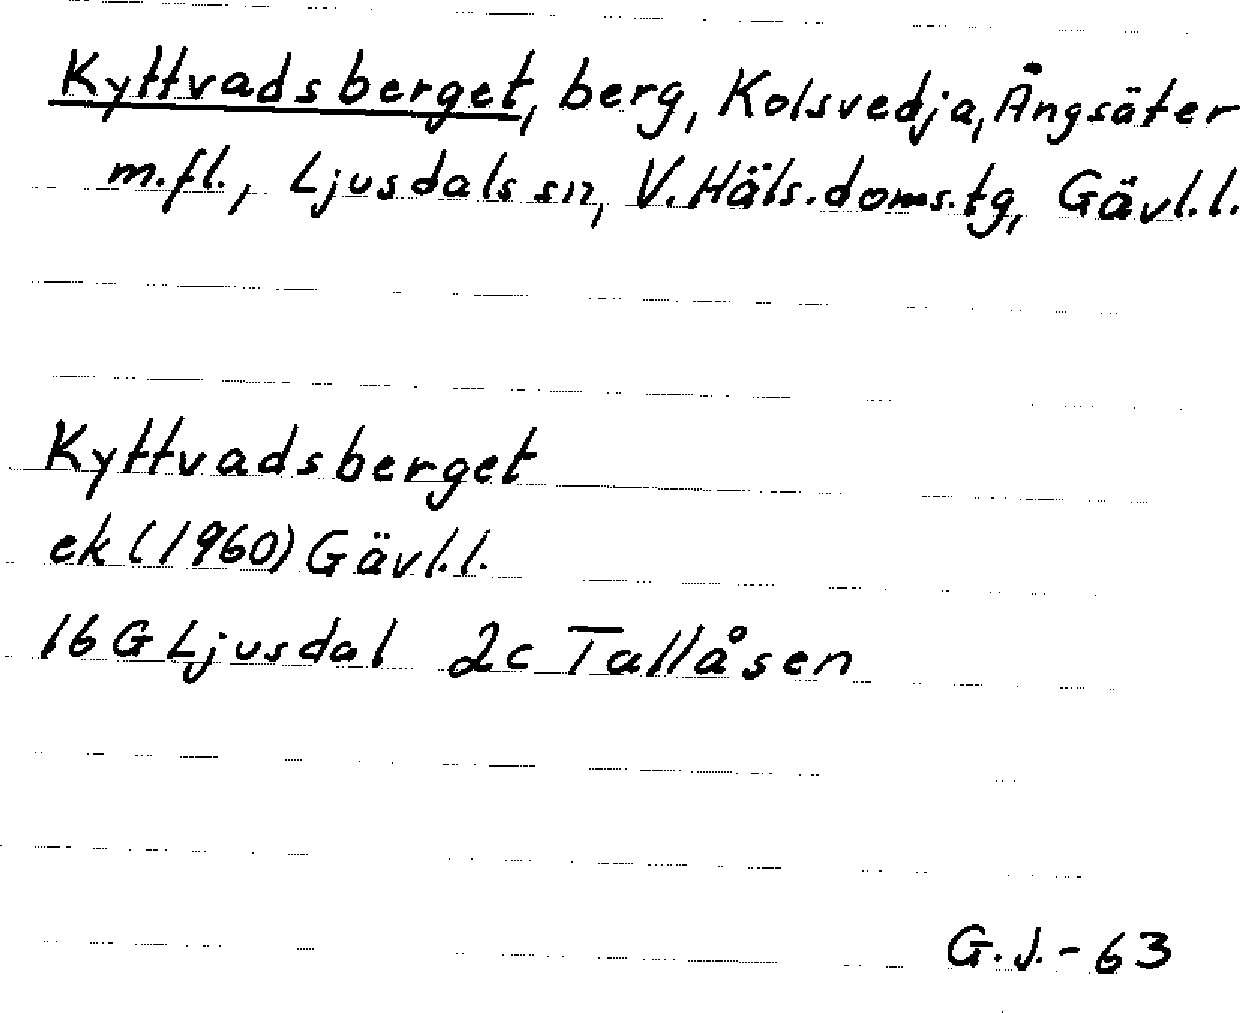 Kyttvadsberget, berg, Kolsvedja, Ängsäter
m.fl., Ljusdals sn, V. Häls. doms.tg, Gävl.l.
Kyttvadsberget
ek (1960) Gävl.l.
16G Ljusdal 2c Tallåsen
G.J.-63